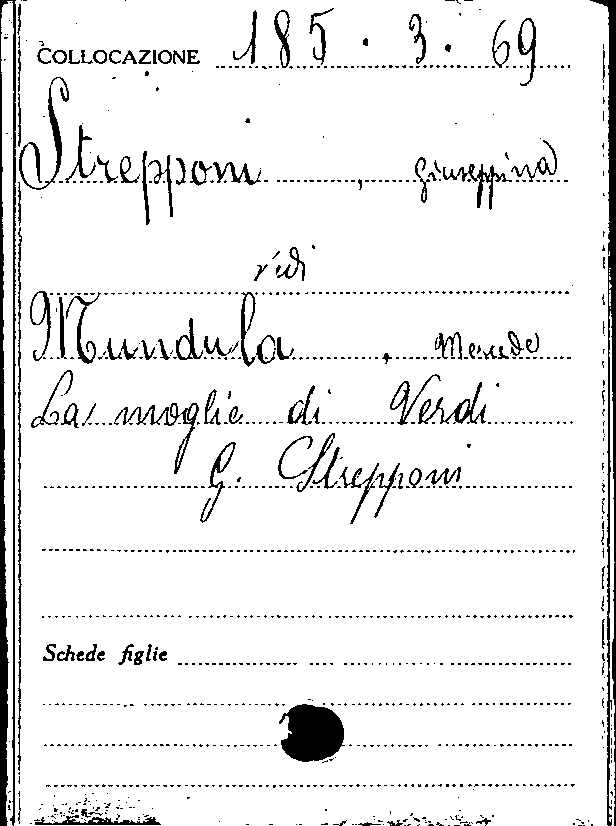 COLLOCAZIONE 185 . 3 . 69
Strepponi , Giuseppina
vidi
Mundula , Mercede
La moglie di Verdi
G. Strepponi
Schede figlie